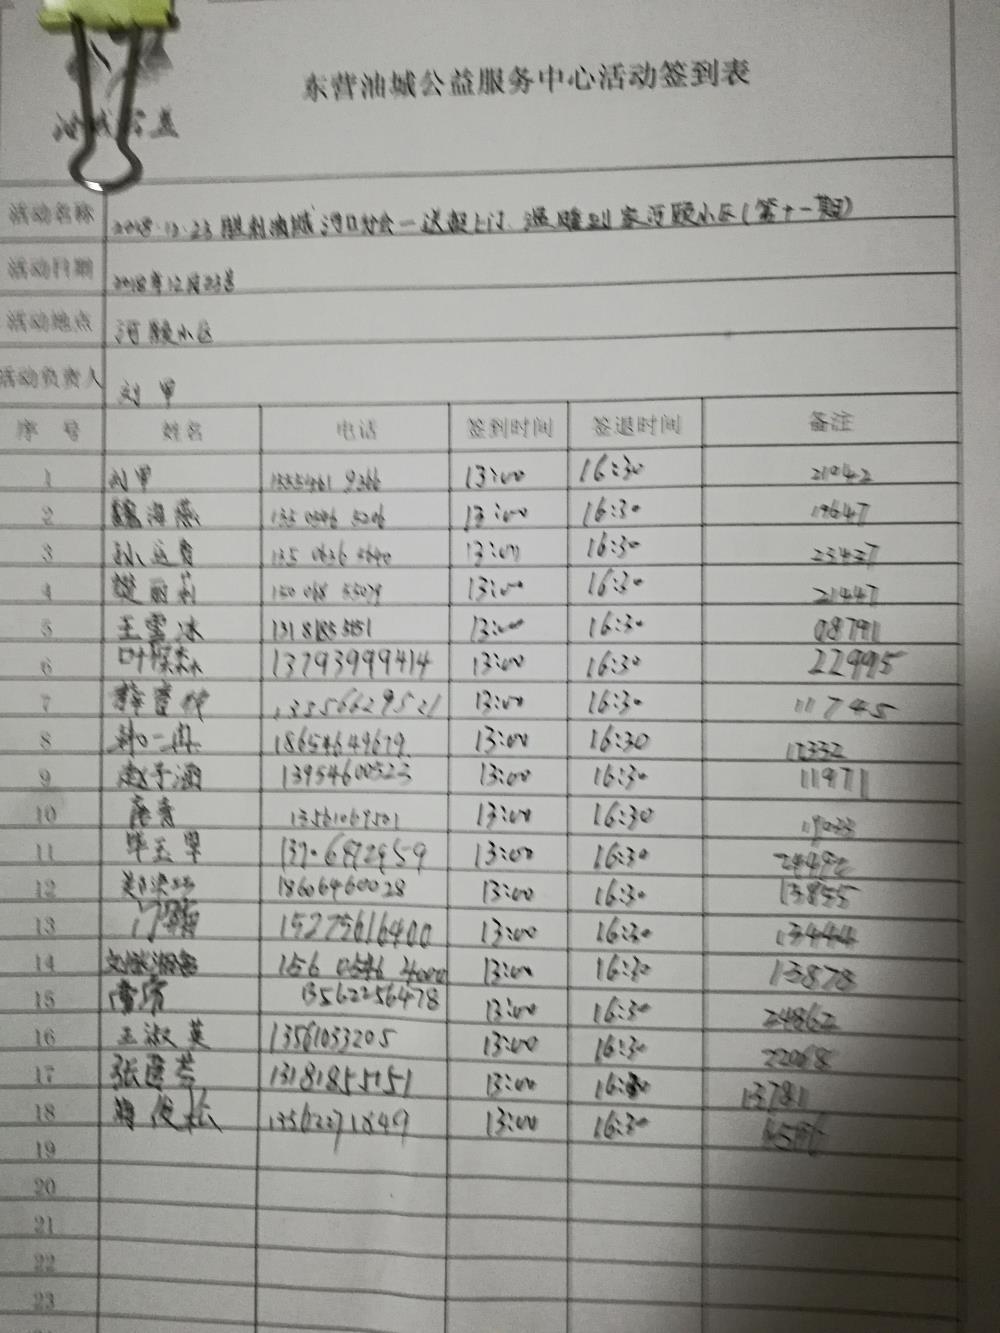 东营油城公益服务中心活动签到表
油城公益
活动名称 2018.12.23 胜利油城河口分会一送报上门.温暖到家河颐小区(第十一期)
活动日期 2018年12月23号
活动地点 河颐小区
活动负责人 刘甲
序号 姓名 电话 签到时间 签退时间 备注
1 刘甲 13:00 16:30 21042
2 魏海燕 13:00 16:30 19647
3 13:00 16:30 23427
4 丽莉 13:00 16:30 21447
5 王雪冰 13181855151 13:00 16:30 08791
6 13793999414 13:00 16:30 22995
7 13556629521 13:00 16:30 11745
8 18654649619 13:00 16:30 12332
9 赵子涵 13954600523 13:00 16:30 11971
10 13561069501 13:00 16:30
11 毕玉翠 13706492959 13:00 16:30
12 18606460028 13:00 16:30 13855
13 15275616400 13:00 16:30 13444
14 156 0546 4000 13:00 16:30 13878
15 13562256478 13:00 16:30 24862
16 王淑英 13561053205 13:00 16:30 22068
17 13181855151 13:00 16:30 13781
18 俊松 13562371849 13:00 16:30
19
20
21
22
23